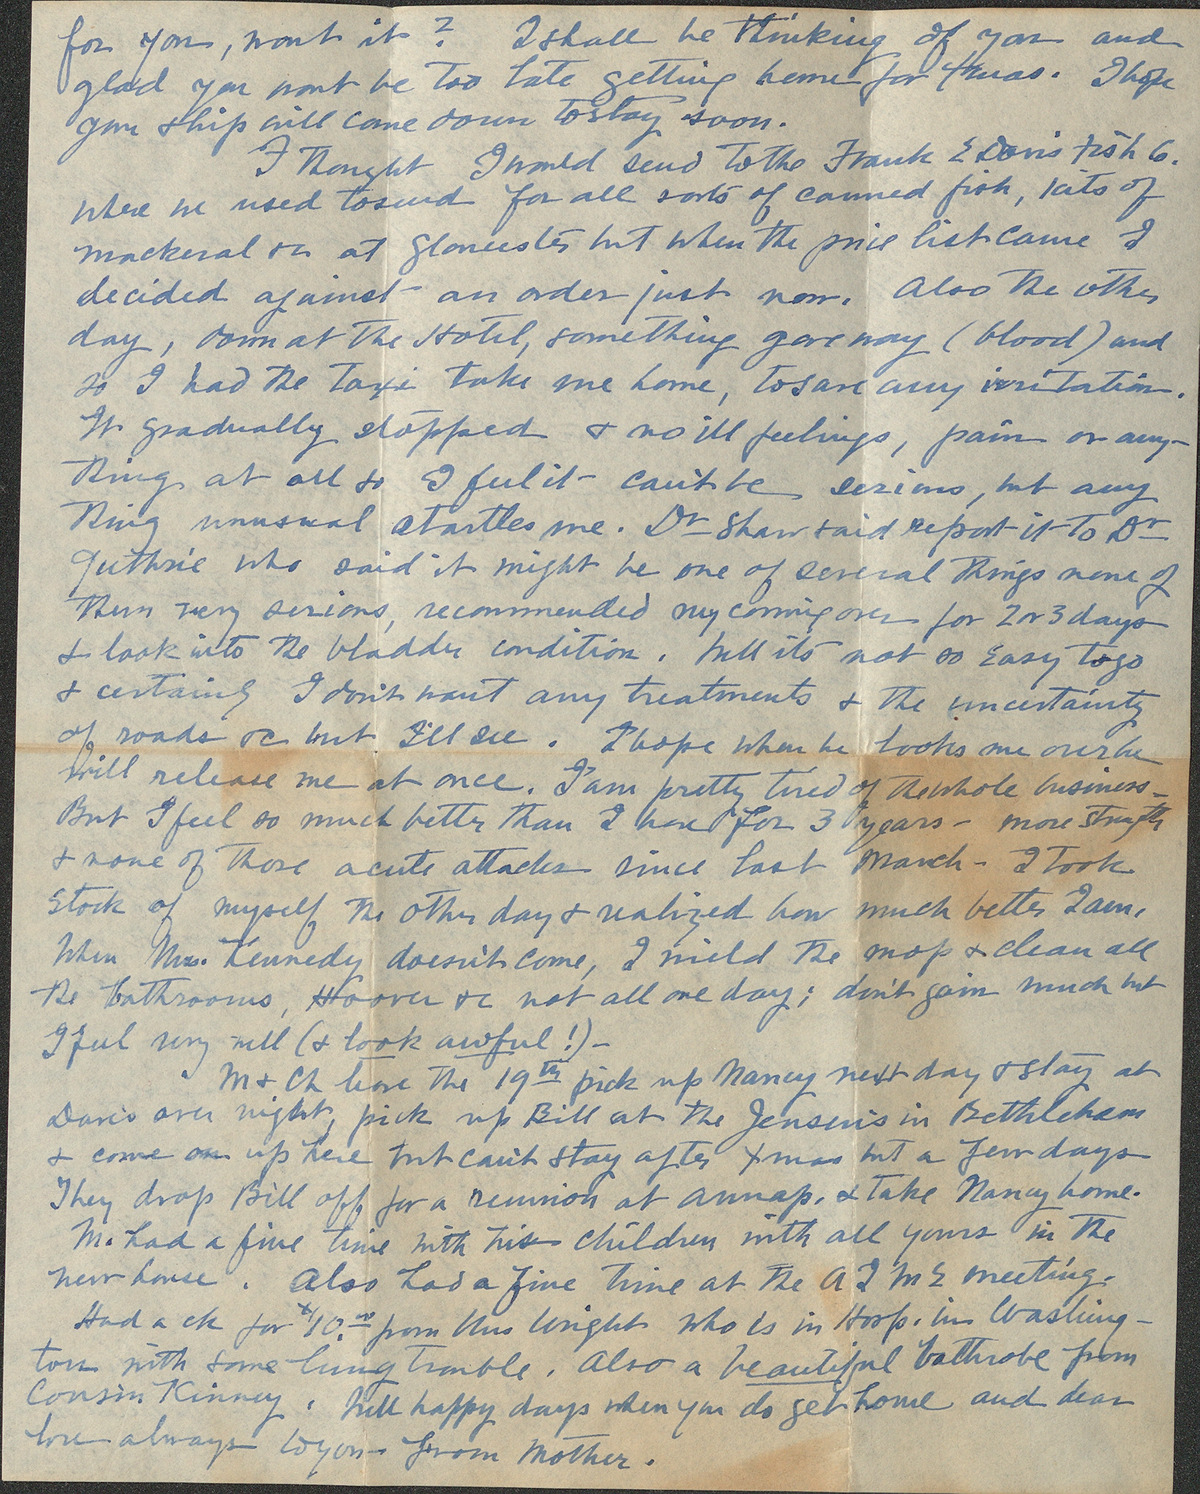 for you, wont it? I shall be thinking of you and
glad you wont be too late getting home for Xmas. I hope
your ship will come down to stay soon.
I thought I would send to the Frank E Davis Fish Co.
where we used to send for all sorts of canned fish, kits of
mackeral &c at Gloucester but when the price list came I
decided against an order just now. Also the other
day, down at the Hotel, something gave way (blood) and
so I had the taxi take me home, to save any irritation.
It gradually stopped & no ill feelings, pain or any-
thing at all so I feel it can't be serious, but any
thing unusual startles me. Dr Shaw said report it to Dr
Guthrie who said it might be one of several things none of
them very serious, recommended my coming over for 2 or 3 days
& look into the bladder condition. Well its not so easy to go
& certainly I don't want any treatments & the uncertainty
of roads &c but I'll see. I hope when he looks me over he
will release me at once. I am pretty tired of the whole business-
But I feel so much better than I have for 3 years - more strength
& none of those acute attacks since last March - I took
stock of myself the other day & realized how much better I am.
When Mrs. Kennedy doesn't come, I wield the mop & clean all
the bathrooms, Hoover &c not all one day; don't gain much but
I feel very well (& look awful!) -
M & Ch leave the 19th pick up Nancy next day & stay at
Davis over night, pick up Bill at the Jensen's in Bethlehem
& come on up here but can't stay after Xmas but a few days
They drop Bill off for a reunion at Annap. & take Nancy home.
M. had a fine time with his children with all yours in the
new house. Also had a fine time at the A I M E meeting.
Had a ck for $10.00 from Mrs Wright who is in Hosp. in Washing-
ton with some lung trouble. Also a beautiful bathrobe from
Cousin Kinney. Well happy days when you do get home and dear
love always to you from Mother.